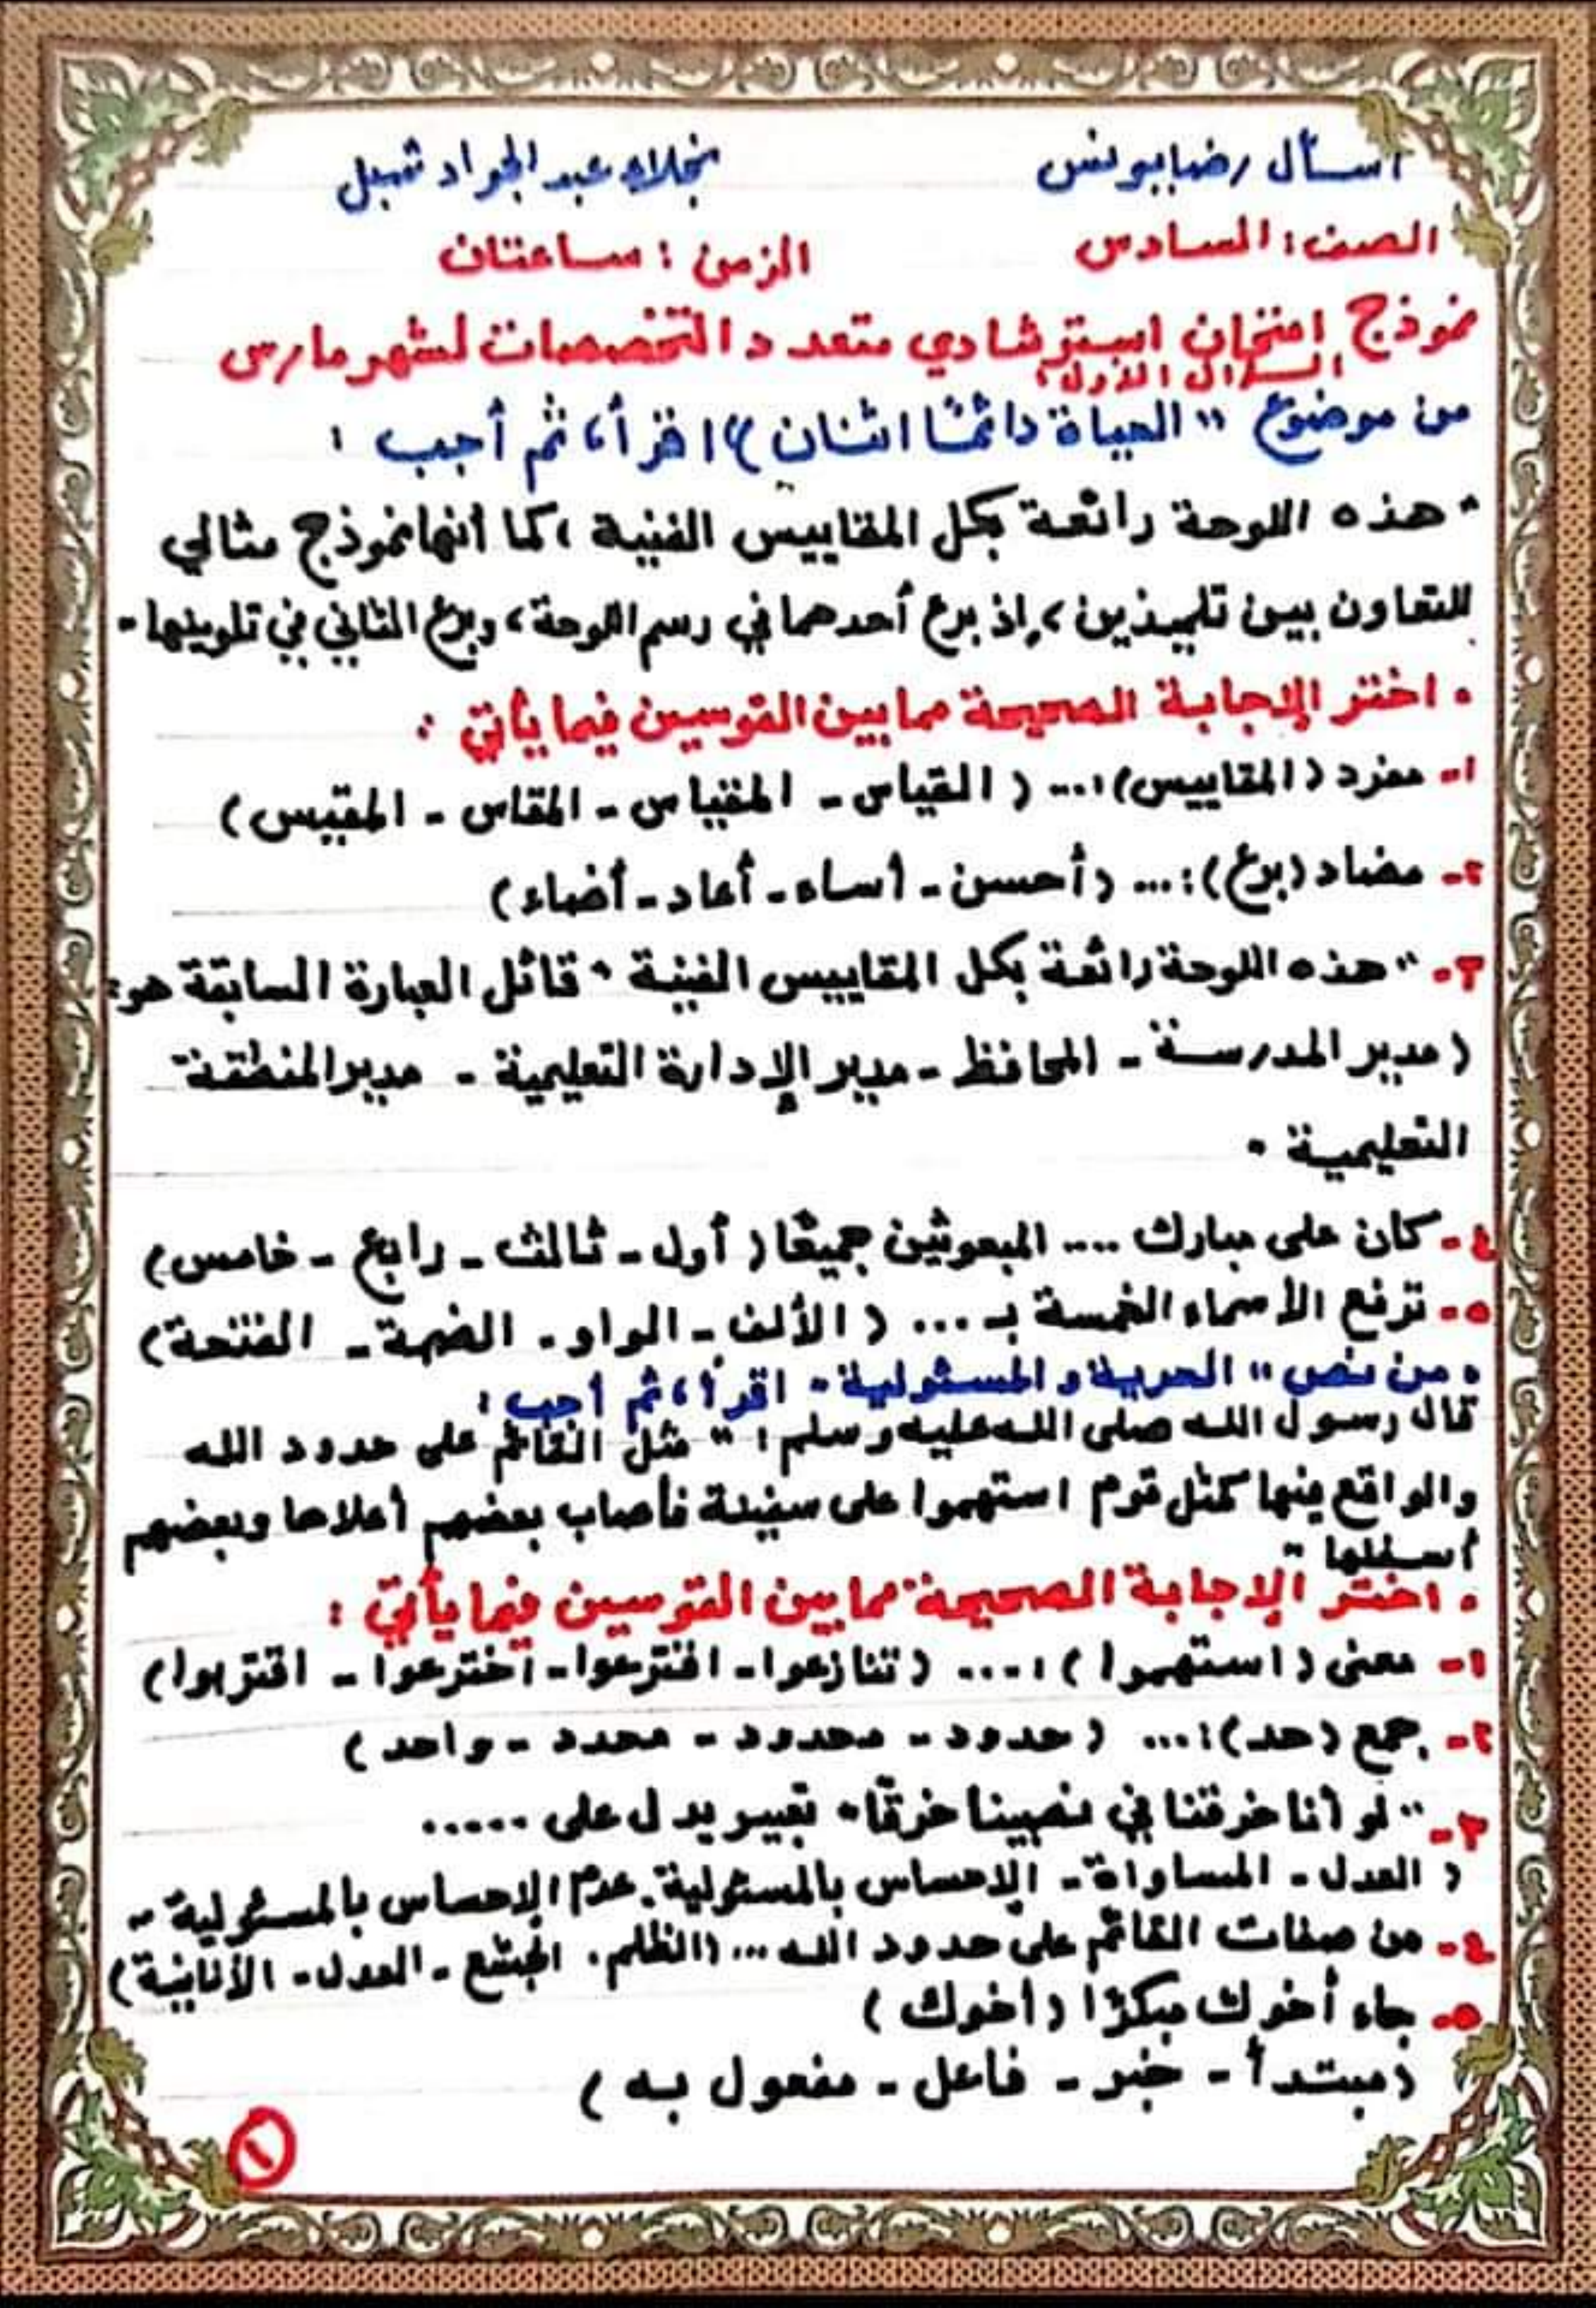 آسأل رضا يونس
نجلاء عبد الجواد شبل
الصف: السادس
الزمن: ساعتان
نموذج امتحان استرشادي متعدد التخصصات لشهر مارس
السؤال الأول:
من موضوع "الحياة دائمًا اثنان" اقرأ، ثم أجب:
"هذه اللوحة رائعة بكل المقاييس الفنية، كما أنها نموذج مثالي
للتعاون بين تلميذين، إذ برع أحدهما في رسم اللوحة، وبرع الثاني في تلوينها"
• اختر الإجابة الصحيحة مما بين القوسين فيما يأتي:
١- مفرد (المقاييس):... (القياس - المقياس - المقاس - المقيس)
٢- مضاد (برع):... (أحسن - أساء - أعاد - أضاء)
٣- "هذه اللوحة رائعة بكل المقاييس الفنية" قائل العبارة السابقة هو:
(مدير المدرسة - المحافظ - مدير الإدارة التعليمية - مدير المنطقة
التعليمية.
٤- كان على مبارك .... المبعوثين جميعًا (أول - ثالث - رابع - خامس)
٥- ترفع الأسماء الخمسة بـ ... (الألف - الواو - الضمة - الفتحة)
• من نص "الحرية والمسئولية" اقرأ، ثم أجب:
قال رسول الله صلى الله عليه وسلم: "مثل القائم على حدود الله
والواقع فيها كمثل قوم استهموا على سفينة فأصاب بعضهم أعلاها وبعضهم
أسفلها"
• اختر الإجابة الصحيحة مما بين القوسين فيما يأتي:
١- معنى (استهموا):.... (تنازعوا - اقترعوا - اخترعوا - اقتربوا)
٢- جمع (حد):... (حدود - محدود - محدد - واحد)
٣- "لو أنا خرقنا في نصيبنا خرقًا" تعبير يدل على .....
(العدل - المساواة - الإحساس بالمسئولية - عدم الإحساس بالمسئولية -
٤- من صفات القائم على حدود الله ... (الظلم. الجشع - العدل - الأنانية)
٥- جاء أخوك مبكرًا (أخوك)
(مبتدأ - خبر - فاعل - مفعول به)
١